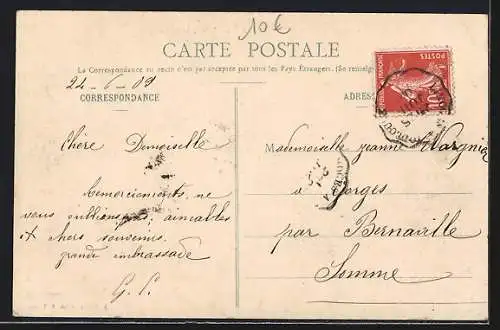 10€
CARTE POSTALE
La Correspondance au recto n'est pas acceptée par tous les Pays Étrangers. (Se renseigner
24-6-09
CORRESPONDANCE
ADRES
Chère Demoiselle
Remerciements, ne
vous oublions pas, aimables
et chers souvenirs,
grande embrassade
G. C.
Mademoiselle Jeanne
à
par Bernaville
Somme